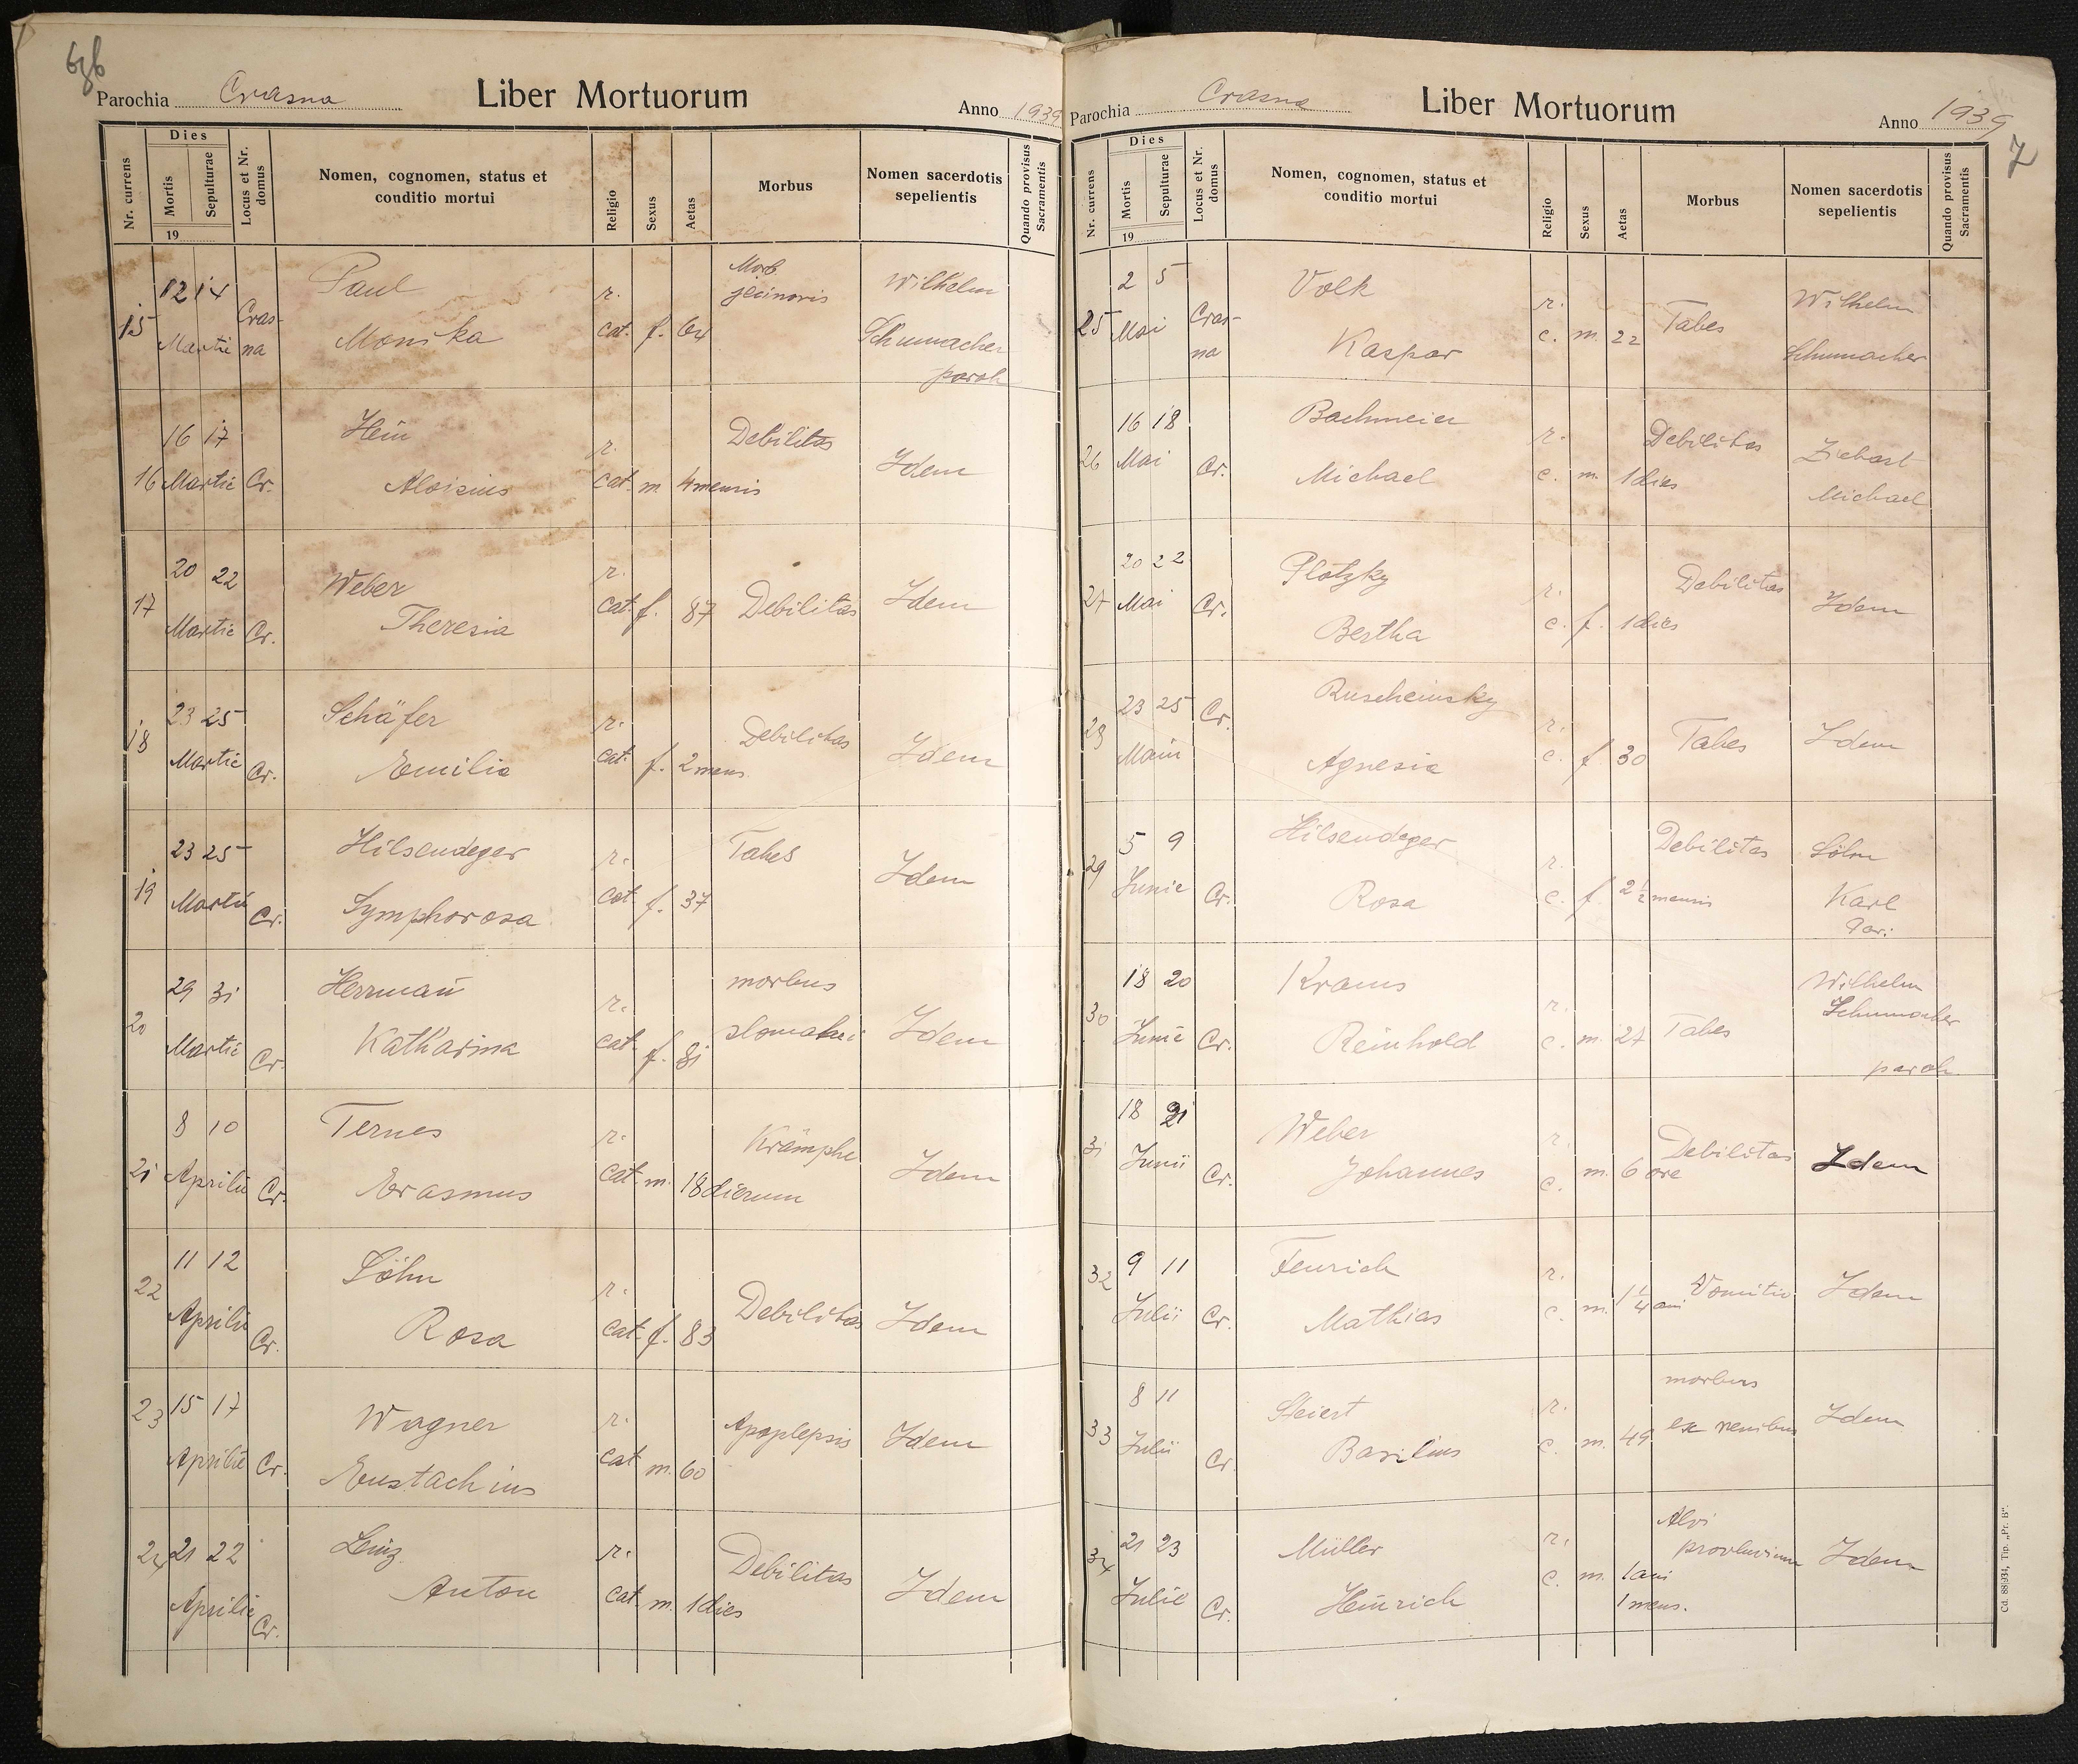 6
Parochia Crasna Liber Mortuorum Anno 1939
Nr. currens
Dies
Mortis
Sepulturae
19
Locus et Nr. domus
Nomen, cognomen, status et conditio mortui
Religio
Sexus
Aetas
Morbus
Nomen sacerdotis sepelientis
Quando provisus Sacramentis
15 12 14 Martie Crasna Paul Monika r. cat. f. 64 Morb. jecinoris Wilhelm Schumacher paroh
16 16 17 Martie Cr. Hein Aloisius r. cat. m 4 mensis Debilitas Idem
17 20 22 Martie Cr. Weber Theresia r. cat. f. 87 Debilitas Idem
18 23 25 Martie Cr. Schäfer Emilia r. cat. f. 2 mens Debilitas Idem
19 23 25 Martii Cr. Hilsendeger Symphorosa r. cat f. 37 Tabes Idem
20 29 31 Martie Cr. Herrmañ Katharina r. cat. f. 81 morbus Idem
21 8 10 Aprilii Cr. Ternes Erasmus r. cat. m. 18 dierum Krämphe Idem
22 11 12 Aprilii Cr. Söhn Rosa r. cat. f. 83 Debilitas Idem
23 15 17 Aprilie Cr. Wagner Eustachius r. cat m. 60 Apoplepsis Idem
24 21 22 Aprilie Cr. Leinz Anton r. cat. m. 1 dies Debilitas Idem
Parochia Crasna Liber Mortuorum Anno 1939
7
Nr. currens
Dies
Mortis
Sepulturae
19
Locus et Nr. domus
Nomen, cognomen, status et conditio mortui
Religio
Sexus
Aetas
Morbus
Nomen sacerdotis sepelientis
Quando provisus Sacramentis
25 2 5 Mai Crasna Volk Kaspar r. c. m. 22 Tabes Wilhelm Schumacher
26 16 18 Mai Cr. Bachmeier Michael r. c. m. 1 dies Debilitas Ziebart Michael
27 20 22 Mai Cr. Plotzky Bertha r. c. f. 1 dies Debilitas Idem
28 23 25 Cr. Ruscheinsky Agnesia r. c. f 30 Tabes Idem
29 5 9 Junie Cr. Hilsendeger Rosa r. c. f. 2 1/2 mensis Debilitas Söhn Karl Par.
30 18 20 Junie Cr. Kraus Reinhold r. c. m. 27 Tabes Wilhelm Schumacher paroh
31 18 21 Junii Cr. Weber Johannes r. c. m. 6 ore Debilitas Idem
32 9 11 Julii Cr. Fenrich Mathias r. c. m. 1 1/4 ani Vomitio Idem
33 8 11 Julii Cr. Steiert Basilius r. c. m. 49 morbus ex renibus Idem
34 21 23 Julie Cr. Müller Heinrich r. c. m. 1 ani 1 mens. Alvi Idem
Cd. 88|934, Tip. „Pr. B".